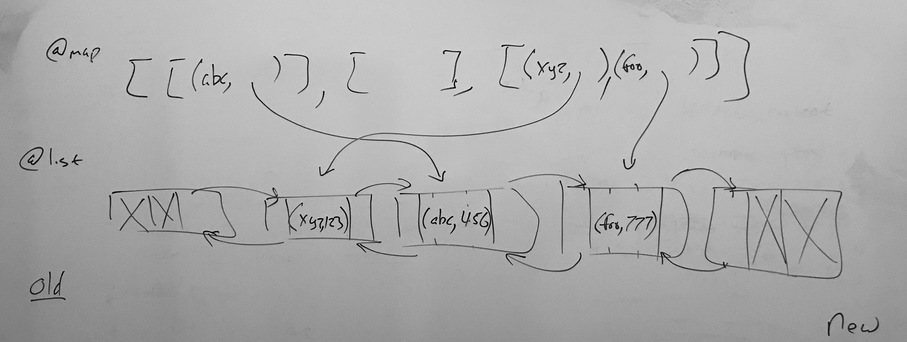 @map
[ [(abc, )], [ ], [(xyz, ),(foo, )] ]
@list
(xyz,123) (abc,456) (foo,777)
old
new